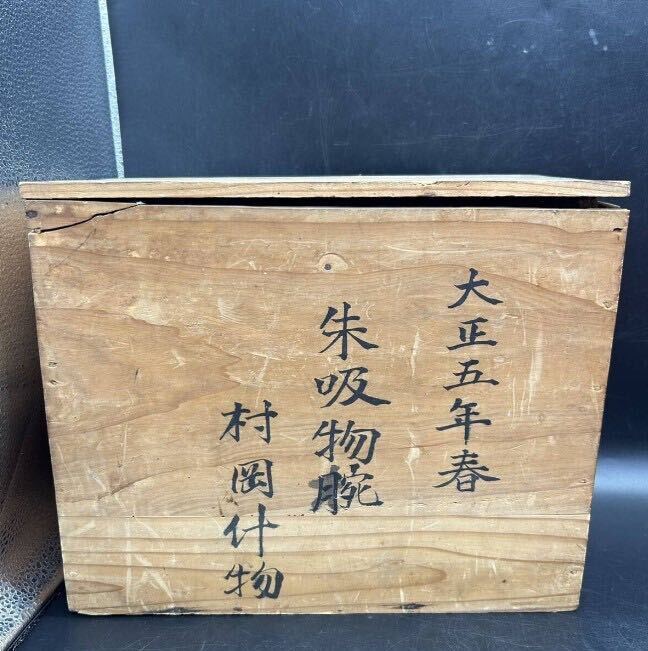 大正五年春
朱吸物腕
村岡什物